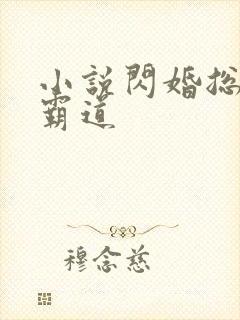 小說閃婚總
霸道
穆念慈